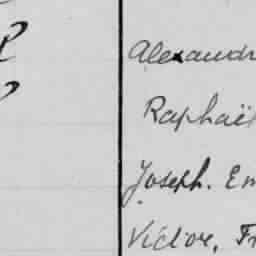 Alexandr
Raphaë
Joseph. Em
Victor, Fr